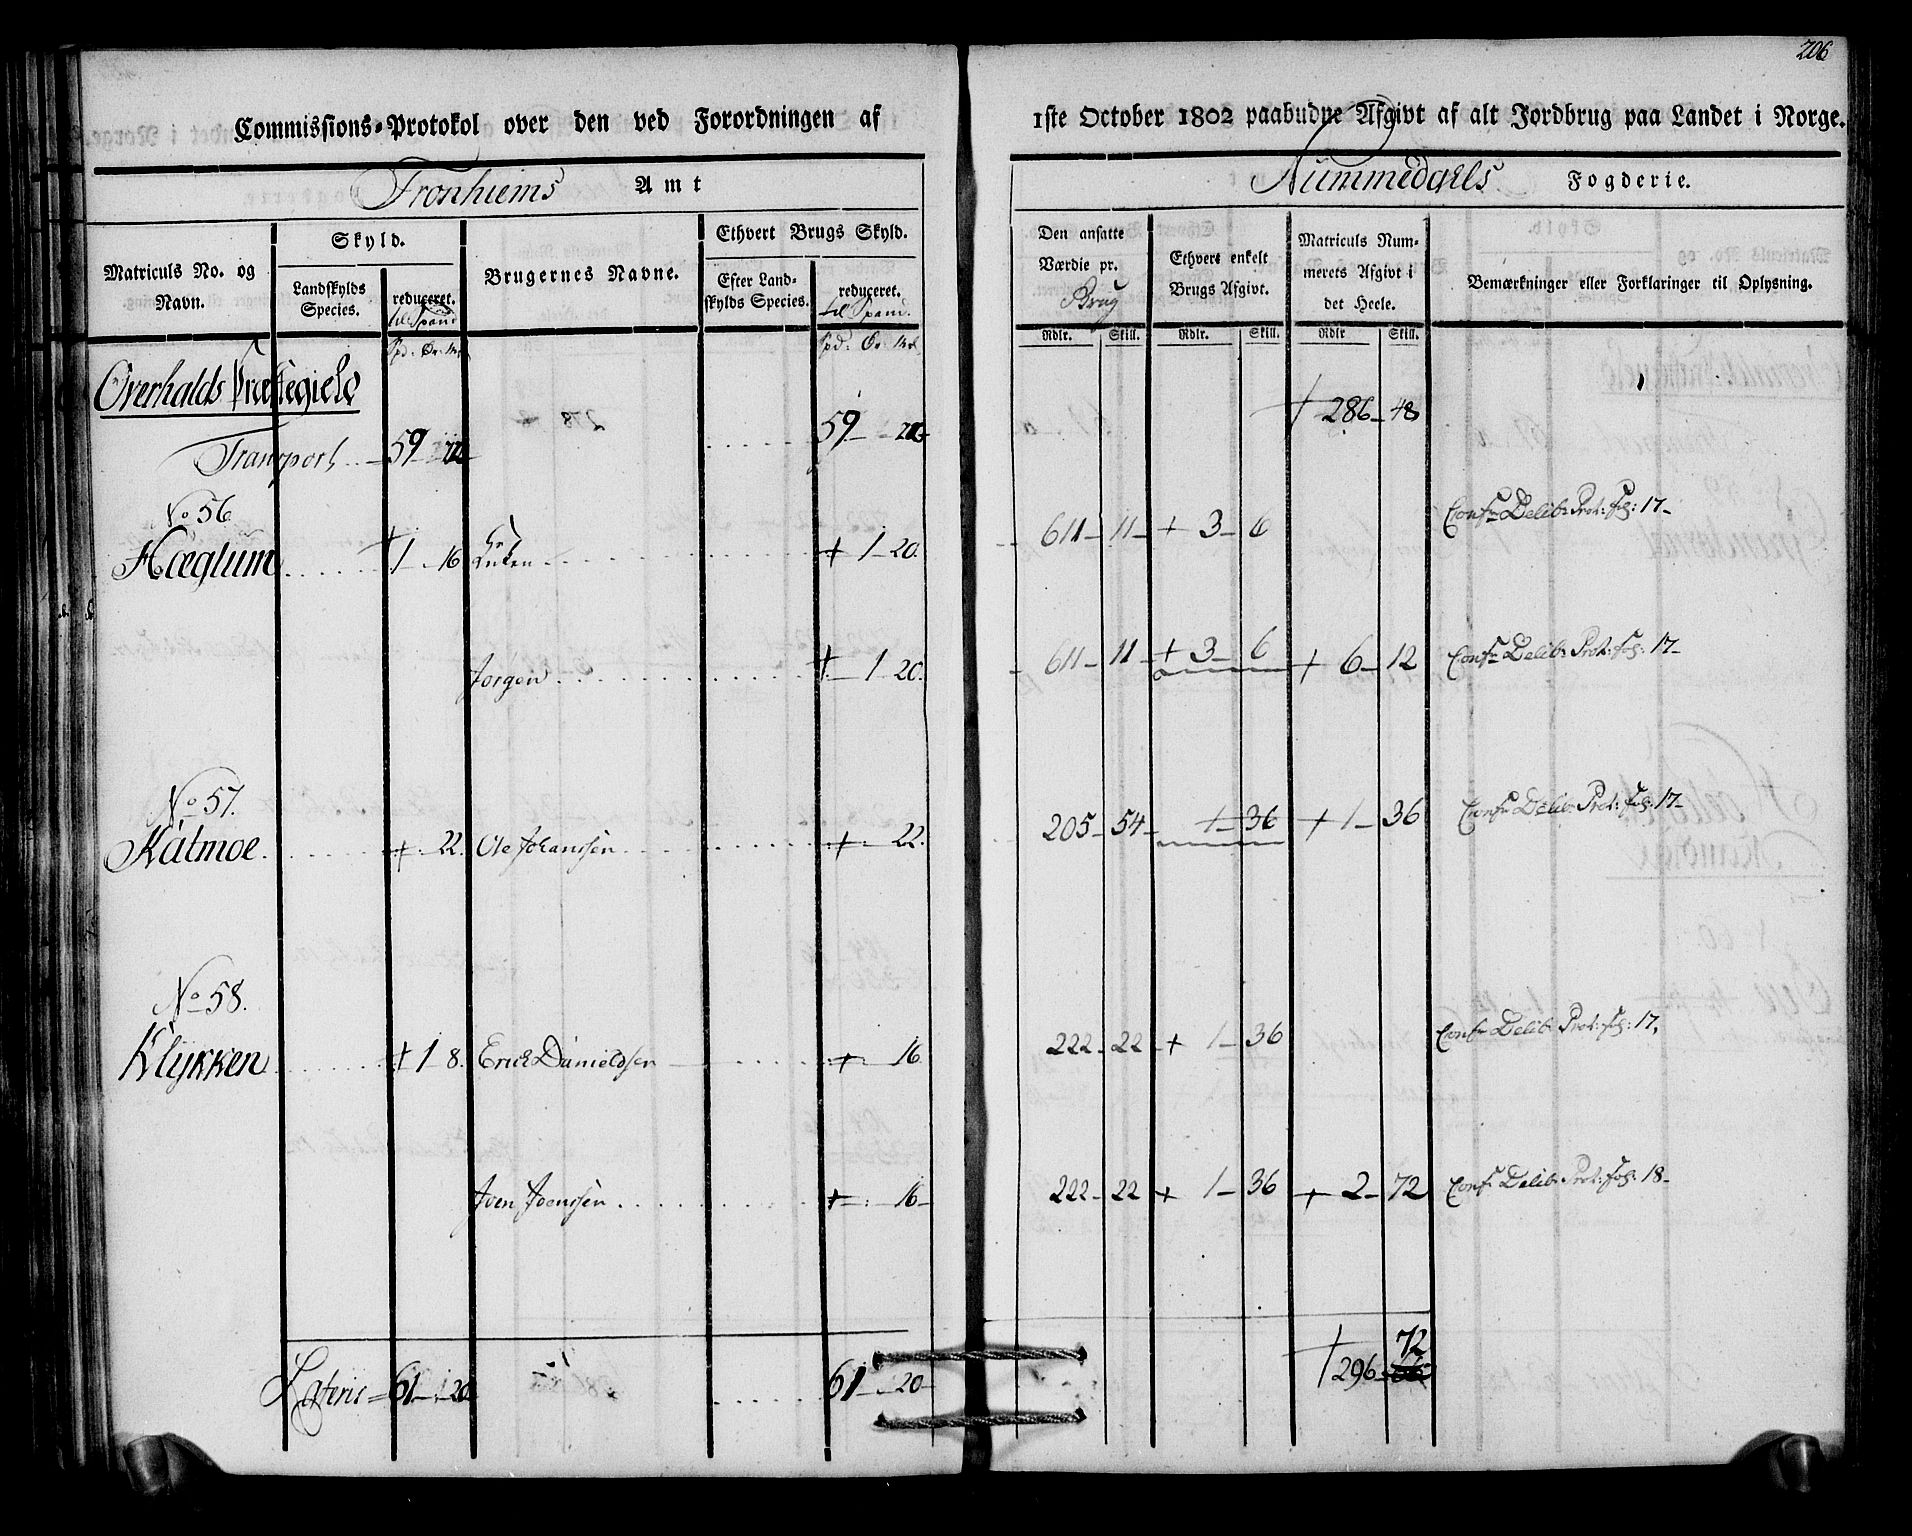 206
Commissions-Protokol over den ved Forordningen af 1ste October 1802 paabudne Afgivt af alt Jordbrug paa Landet i Norge.
Tronhiems Amt
Nummedahls Fogderie.
Matriculs No. og Navn.
Skyld.
Landskylds Species.
reduceret. til Spand
Brugernes Navne.
Ethvert Brugs Skyld.
Efter Landskylds Species.
reduceret. til Spand.
Den ansatte Værdie pr. Brug
Ethvert enkelt Brugs Afgivt.
Matriculs Nummerets Afgivt i det Heele.
Bemærkninger eller Forklaringer til Oplysning.
Spd: Ør: Mrk
Spd: Ør: Mrk
Rdlr. Skill. Rdlr. Skill. Rdlr Skill.
Overhalds Præstegield
+ 286 - 48
Transport .. 59 59
No 56
Hæglum ..... + 1 - 16 + 1 - 20. 611 - 11 - + 3 - 6 Confr Delib: Prot: fol: 17 -
Jørgen ........ + - 1 - 20. 611 - 11 - + 3 - 6 + 6 - 12 Confr Delib: Prot: fol: 17 -
No 57.
Kátmoe. ..... + - 22. Ole Johanssen ........ + - 22. 205 - 54 - 1 - 36 + 1 - 36 Confr Delib: Prot: fol: 17 -
No 58.
Klykken ..... + 1 8. Erich Danieldsen ..... + - 16. 222 - 22 - + 1 - 36 Confr Delib: Prot: fol: 17.
Joen Joenssen ........ + - : - 16 - 222 - 22 + 1 - 36 + 2 - 72 Confr Delib: Prot: fol: 18 -
72
Lateris = 61 - : 20 ..... 61 - 20 - + 296 -